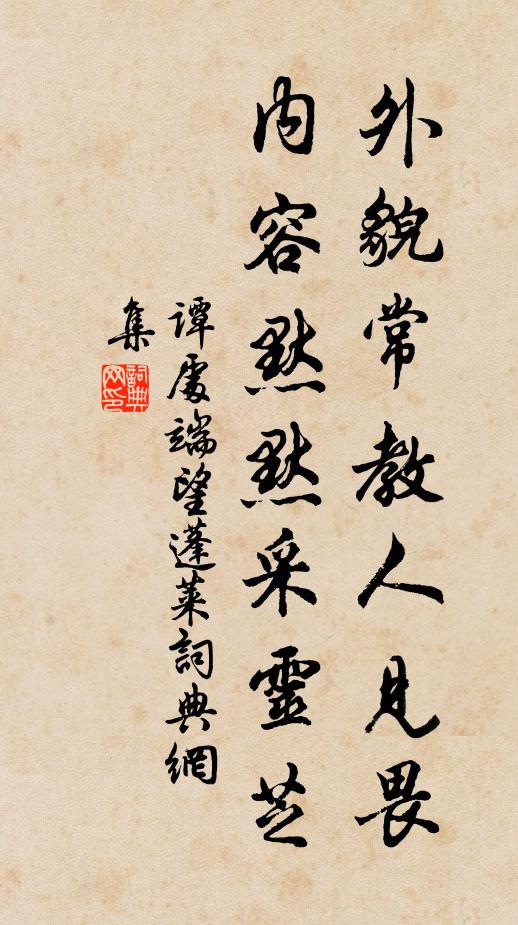 外貌常教人見畏
内容默默采靈芝
譚處端望蓬萊詞典網
集
詞典
网印